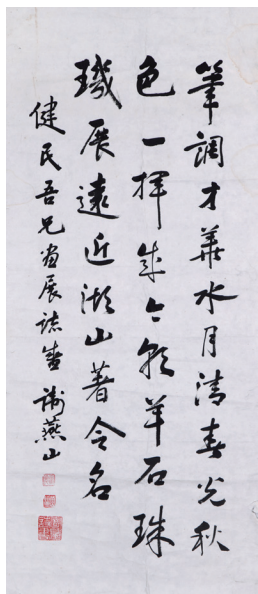 筆調才華水月清春光秋
色一揮成今羊石珠
璣展遠近湖山著令名
健民吾兄畫展誌盛 謝燕山